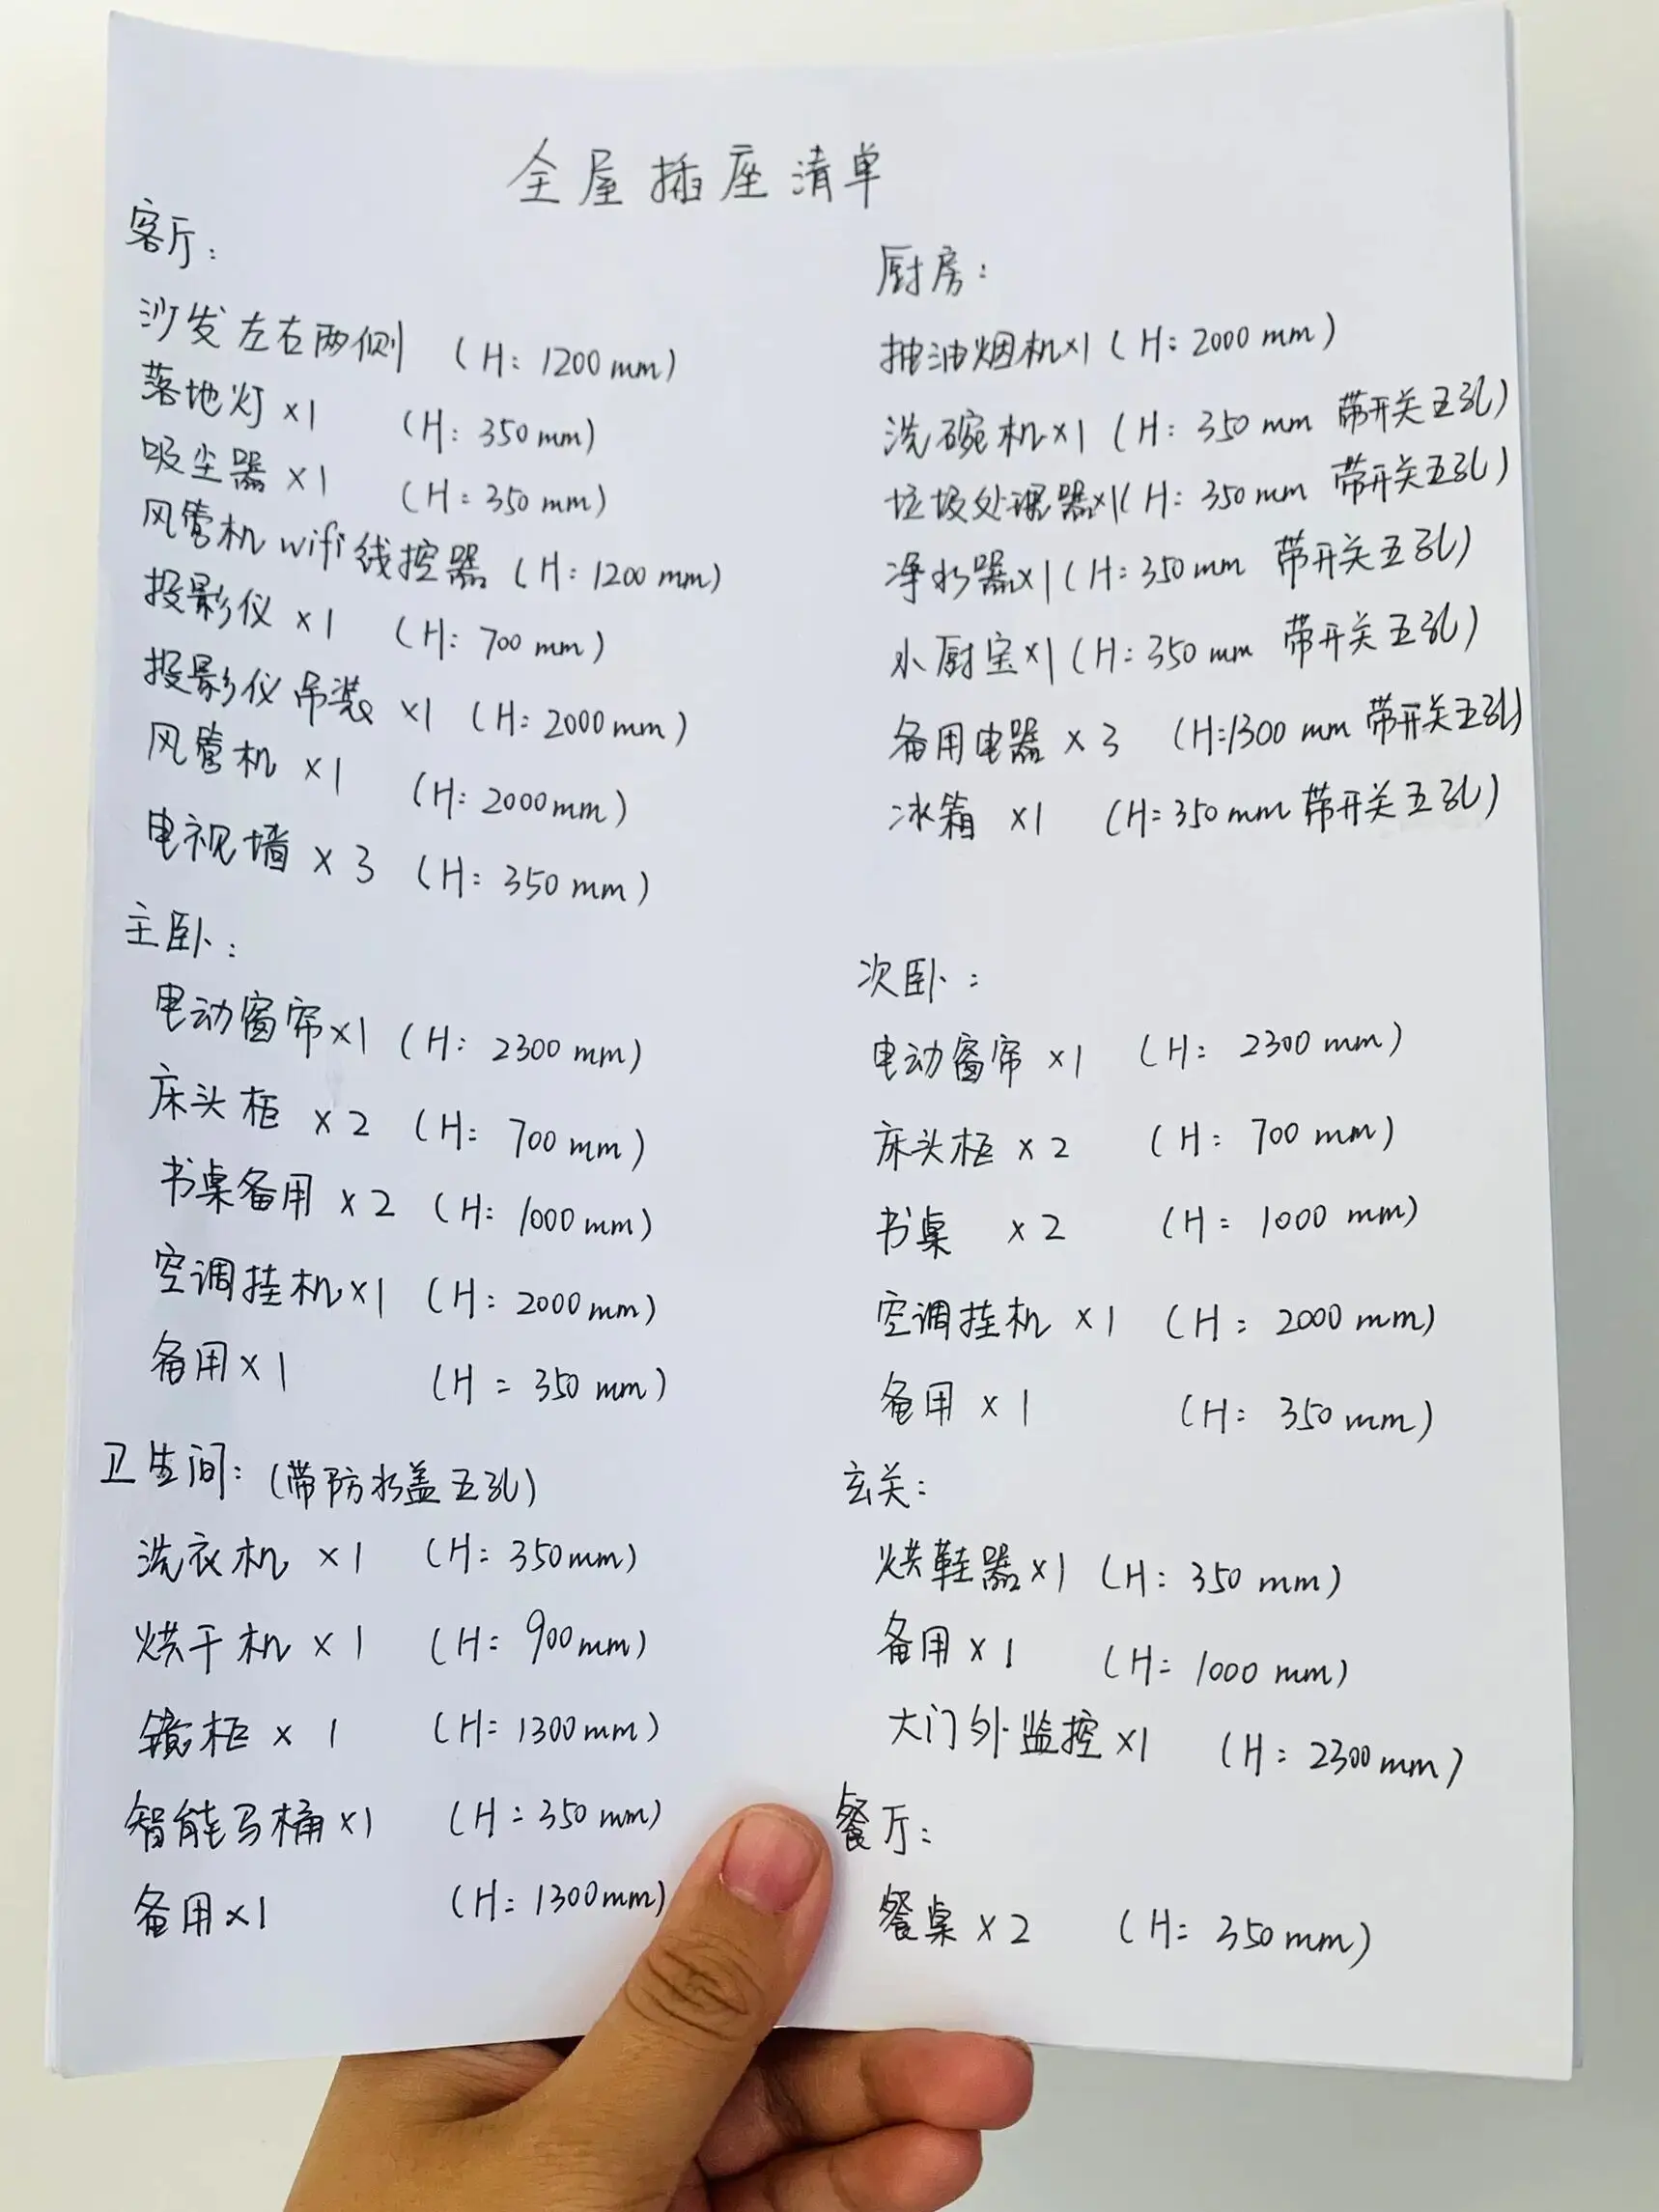 全屋插座清单
客厅：
沙发左右两侧 (H: 1200mm)
落地灯 ×1 (H: 350mm)
吸尘器 ×1 (H: 350mm)
风管机wifi线控器 (H: 1200mm)
投影仪 ×1 (H: 700mm)
投影仪吊装 ×1 (H: 2000mm)
风管机 ×1 (H: 2000mm)
电视墙 ×3 (H: 350mm)
主卧：
电动窗帘×1 (H: 2300mm)
床头柜 ×2 (H: 700mm)
书桌备用 ×2 (H: 1000mm)
空调挂机×1 (H: 2000mm)
备用×1 (H = 350mm)
卫生间：(带防水盖五孔)
洗衣机 ×1 (H: 350mm)
烘干机 ×1 (H: 900mm)
镜柜 × 1 (H: 1300mm)
智能马桶×1 (H: 350mm)
备用×1 (H: 1300mm)
厨房：
抽油烟机×1 (H: 2000mm)
洗碗机×1 (H: 350mm 带开关五孔)
垃圾处理器×1(H: 350mm 带开关五孔)
净水器×1(H: 350mm 带开关五孔)
小厨宝×1(H: 350mm 带开关五孔)
备用电器 × 3 (H:1300mm 带开关五孔)
冰箱 ×1 (H: 350mm 带开关五孔)
次卧：
电动窗帘 ×1 (H: 2300mm)
床头柜 × 2 (H: 700mm)
书桌 ×2 (H: 1000mm)
空调挂机 ×1 (H: 2000mm)
备用 × 1 (H: 350mm)
玄关：
烘鞋器×1 (H: 350mm)
备用 ×1 (H: 1000mm)
大门外监控 ×1 (H: 2300mm)
餐厅：
餐桌 × 2 (H: 350mm)